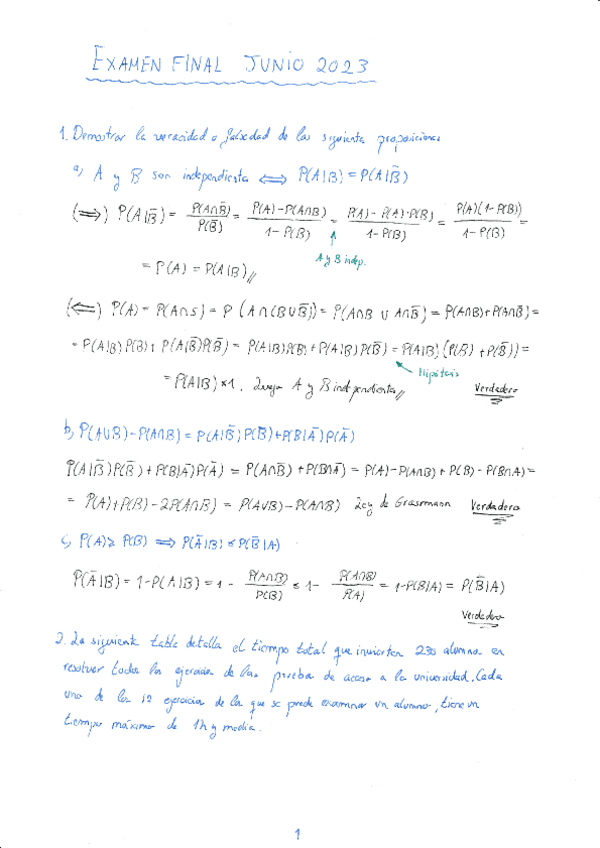 EXAMEN FINAL JUNIO 2023
1. Demostrar la veracidad o falsedad de las siguientes proposiciones
a) A y B son independientes ⟺ P(A|B) = P(A|B̄)
(⟹) P(A|B̄) = P(A∩B̄)/P(B̄) = (P(A)-P(A∩B))/(1-P(B)) = (P(A)-P(A)·P(B))/(1-P(B)) = P(A)(1-P(B))/(1-P(B)) =
A y B indep.
= P(A) = P(A|B)//
(⟸) P(A) = P(A∩S) = P (A∩(B∪B̄)) = P(A∩B ∪ A∩B̄) = P(A∩B)+P(A∩B̄) =
= P(A|B)P(B)+ P(A|B̄)P(B̄) = P(A|B)P(B)+P(A|B)P(B̄) = P(A|B) (P(B) + P(B̄)) =
Hipótesis
= P(A|B)×1. Luego A y B independientes// Verdadero
b) P(A∪B)-P(A∩B) = P(A|B̄)P(B̄)+P(B|Ā)P(Ā)
P(A|B̄)P(B̄)+P(B|Ā)P(Ā) = P(A∩B̄)+P(B∩Ā) = P(A)-P(A∩B)+P(B)-P(B∩A)=
= P(A)+P(B)-2P(A∩B) = P(A∪B)-P(A∩B) Ley de Grassmann Verdadera
c) P(A)≥ P(B) ⟹ P(Ā|B) ≤ P(B̄|A)
P(Ā|B) = 1-P(A|B) = 1 - P(A∩B)/P(B) ≤ 1- P(A∩B)/P(A) = 1-P(B|A) = P(B̄|A)
Verdadero
2. La siguiente tabla detalla el tiempo total que invierten 230 alumnos en
resolver todos los ejercicios de las prueba de acceso a la universidad. Cada
uno de los 12 ejercicios de los que se puede examinar un alumno, tiene un
tiempo máximo de 1h y media.
1